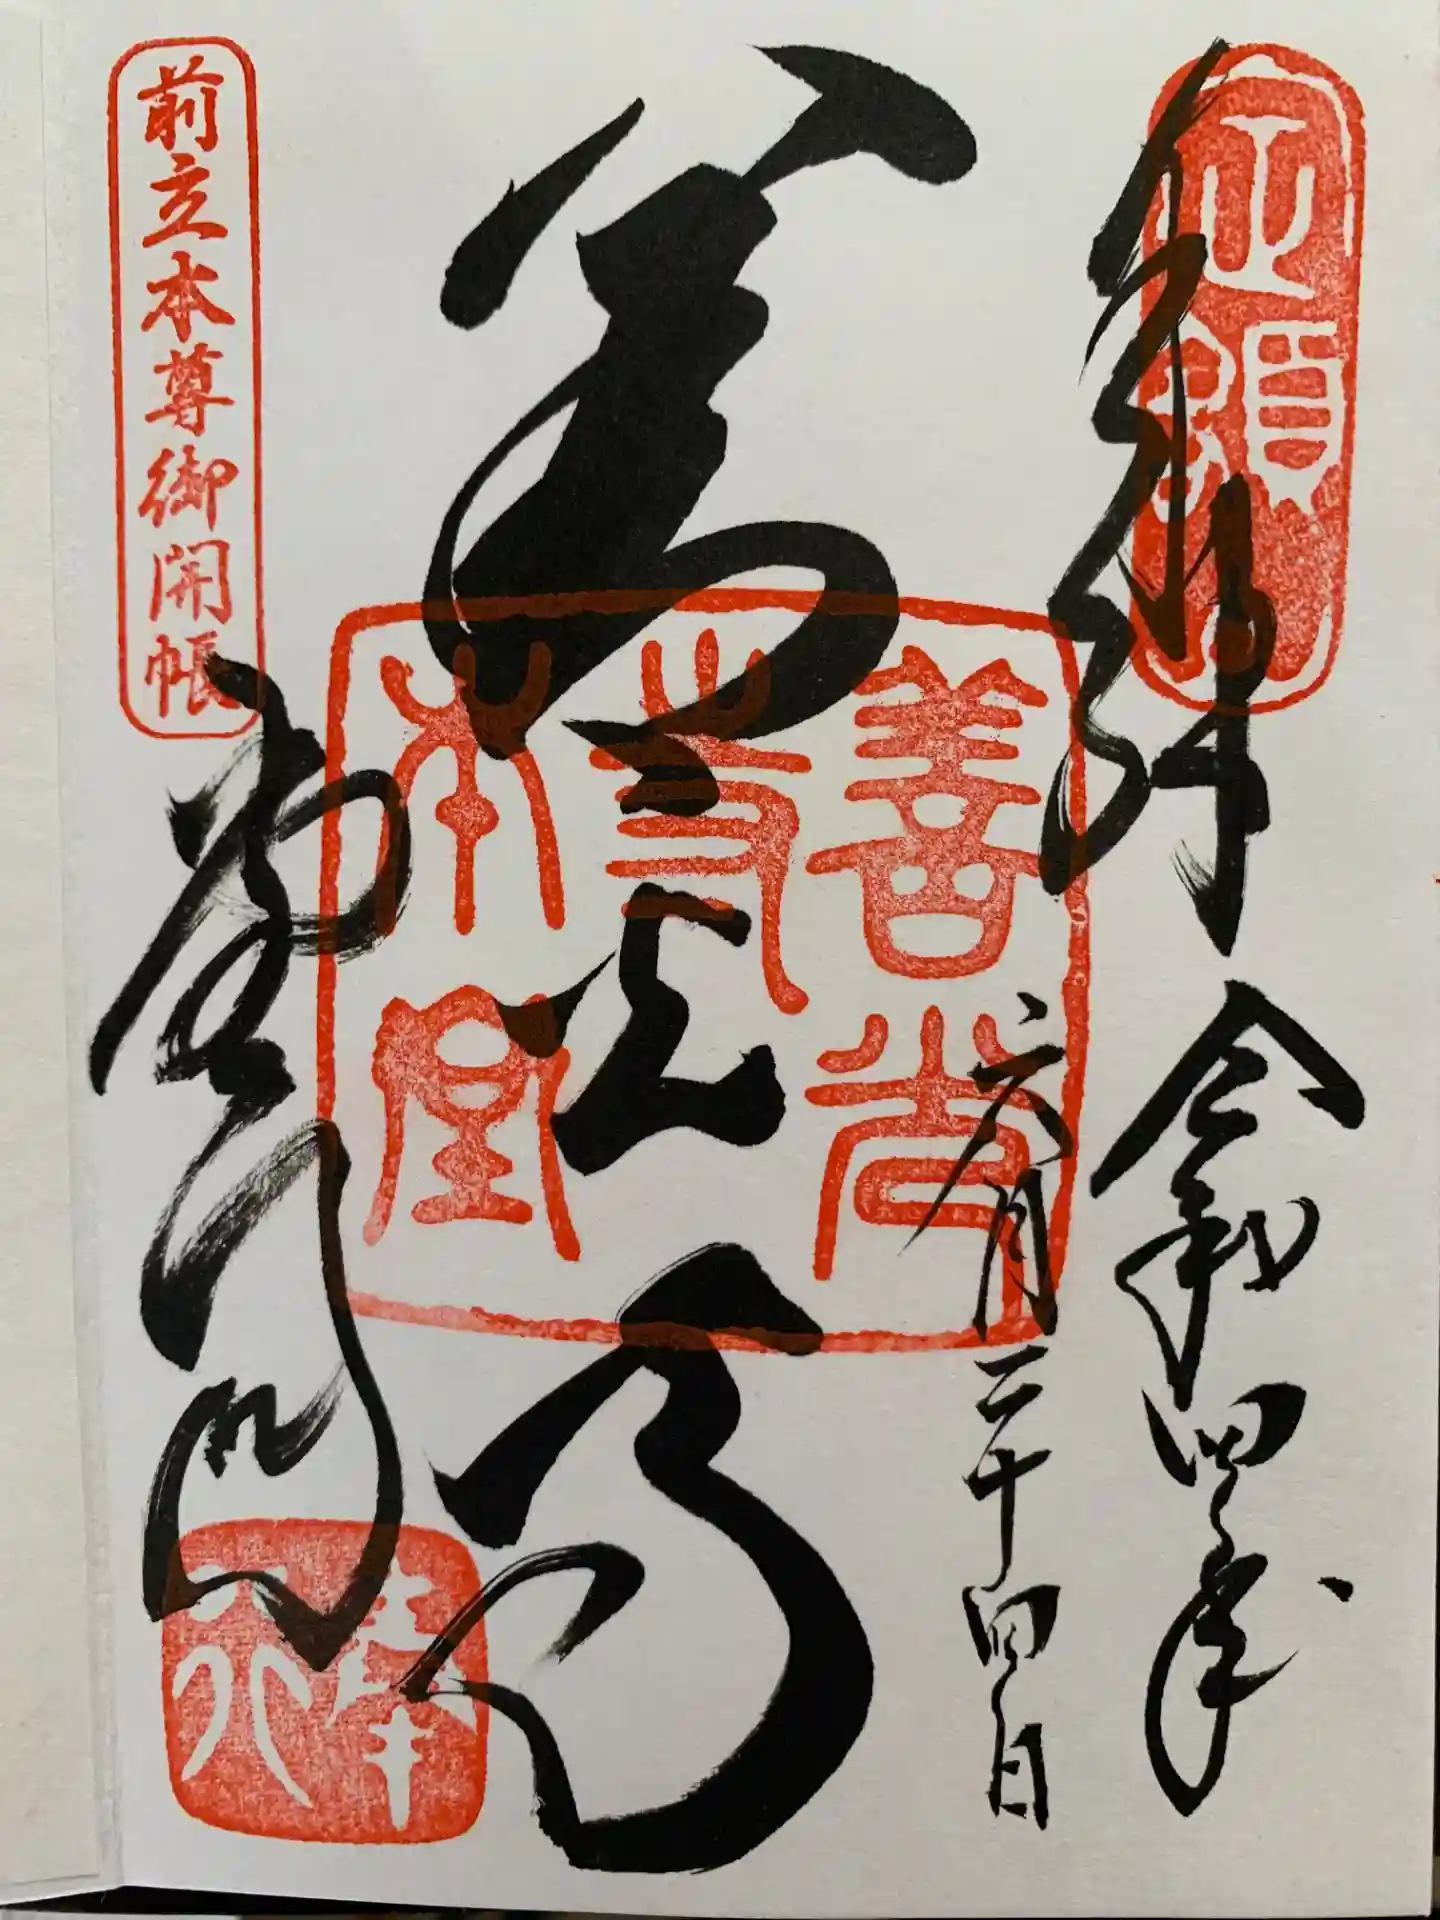 定額
奉拝 令和四年
六月二十四日
善光寺
善光
寺
本堂
前立本尊御開帳